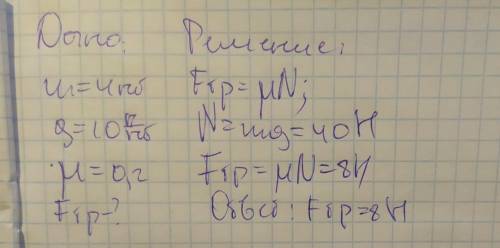 Дано: Решение:
m=4кг Fтр=μN;
g=10 Н/кг N=mg=40Н
μ=0,2 Fтр=μN=8Н
Fтр-? Ответ: Fтр=8Н